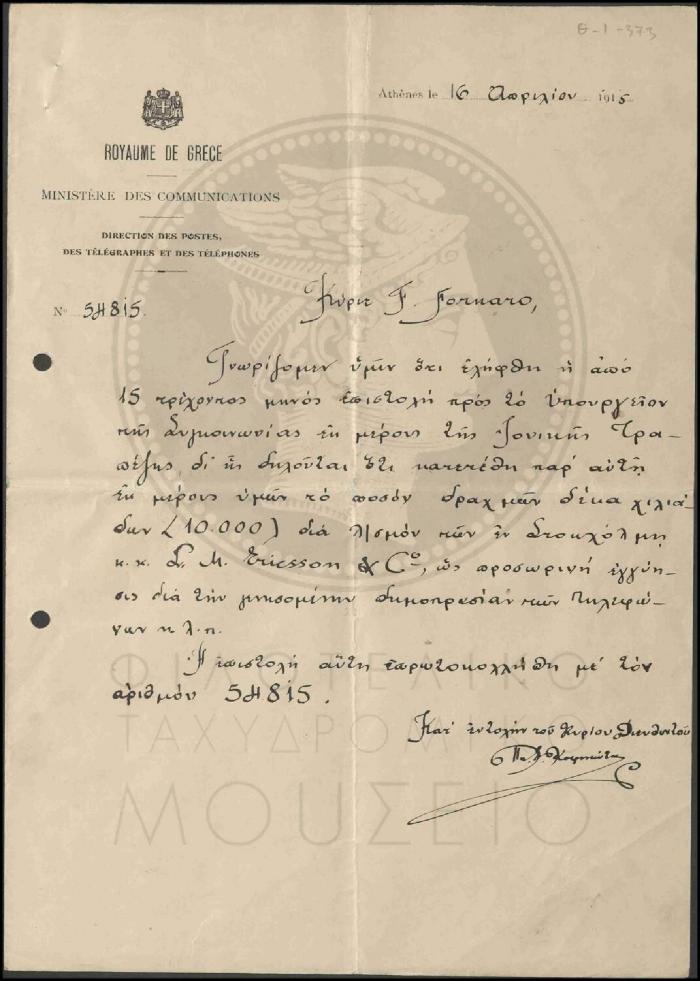 Θ-1-373
Athènes le 16 Απριλίου 1915
ROYAUME DE GRÈCE
MINISTÈRE DES COMMUNICATIONS
DIRECTION DES POSTES,
DES TÉLÉGRAPHES ET DES TÉLÉPHONES
Nº 54815.
Κύριε F. Fornaro,
Γνωρίζομεν ὑμῖν ὅτι ἐλήφθη ἡ ἀπό
15 τρέχοντος μηνός ἐπιστολή πρός τό Ὑπουργεῖον
τῆς Συγκοινωνίας ἐκ μέρους τῆς Ἰονικῆς Τρα-
πέζης, δι' ἧς δηλοῦται ὅτι κατετέθη παρ' αὐτῇ
ἐκ μέρους ὑμῶν τό ποσόν δραχμῶν δέκα χιλιά-
δων (10.000) διά λ/σμόν τῶν ἐν Στοκχόλμῃ
κ.κ. L. M. Ericsson & Cº, ὡς προσωρινή ἐγγύη-
σις διά τήν γενησομένην δημοπρασίαν τῶν τηλεφώ-
νων κ.λ.π.
Ἡ ἐπιστολή αὕτη ἐπρωτοκολλήθη μέ τόν
ἀριθμόν 54815.
Κατ' ἐντολήν τοῦ Κυρίου Διευθυντοῦ
ΦΙΛΟΤΕΛΙΚΟ
ΤΑΧΥΔΡΟΜΙΚΟ
ΜΟΥΣΕΙΟ